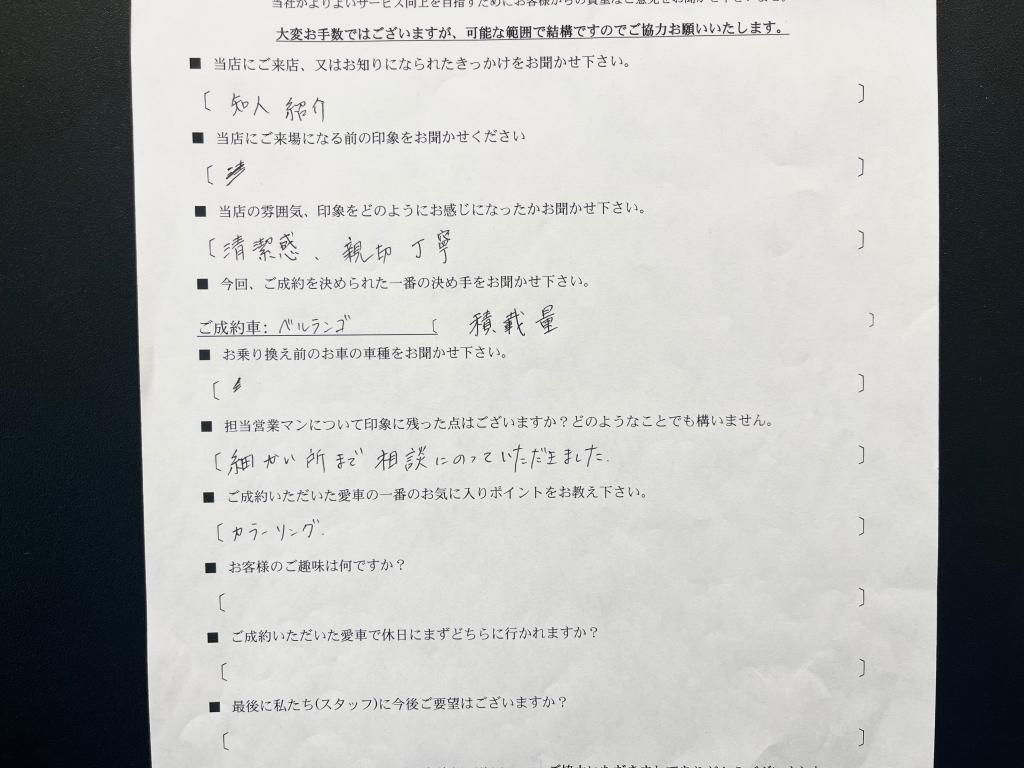 当社がよりよいサービス向上を目指すためにお客様からの貴重なご意見をお聞かせ下さいませ。
大変お手数ではございますが、可能な範囲で結構ですのでご協力お願いいたします。
■ 当店にご来店、又はお知りになられたきっかけをお聞かせ下さい。
〔 知人 紹介 〕
■ 当店にご来場になる前の印象をお聞かせください
〔 〕
■ 当店の雰囲気、印象をどのようにお感じになったかお聞かせ下さい。
〔 清潔感、親切 丁寧 〕
■ 今回、ご成約を決められた一番の決め手をお聞かせ下さい。
ご成約車: ベルランゴ 〔 積載量 〕
■ お乗り換え前のお車の車種をお聞かせ下さい。
〔 〕
■ 担当営業マンについて印象に残った点はございますか？どのようなことでも構いません。
〔 細かい所まで 相談にのっていただきました. 〕
■ ご成約いただいた愛車の一番のお気に入りポイントをお教え下さい。
〔 カラーリング. 〕
■ お客様のご趣味は何ですか？
〔 〕
■ ご成約いただいた愛車で休日にまずどちらに行かれますか？
〔 〕
■ 最後に私たち(スタッフ)に今後ご要望はございますか？
〔 〕